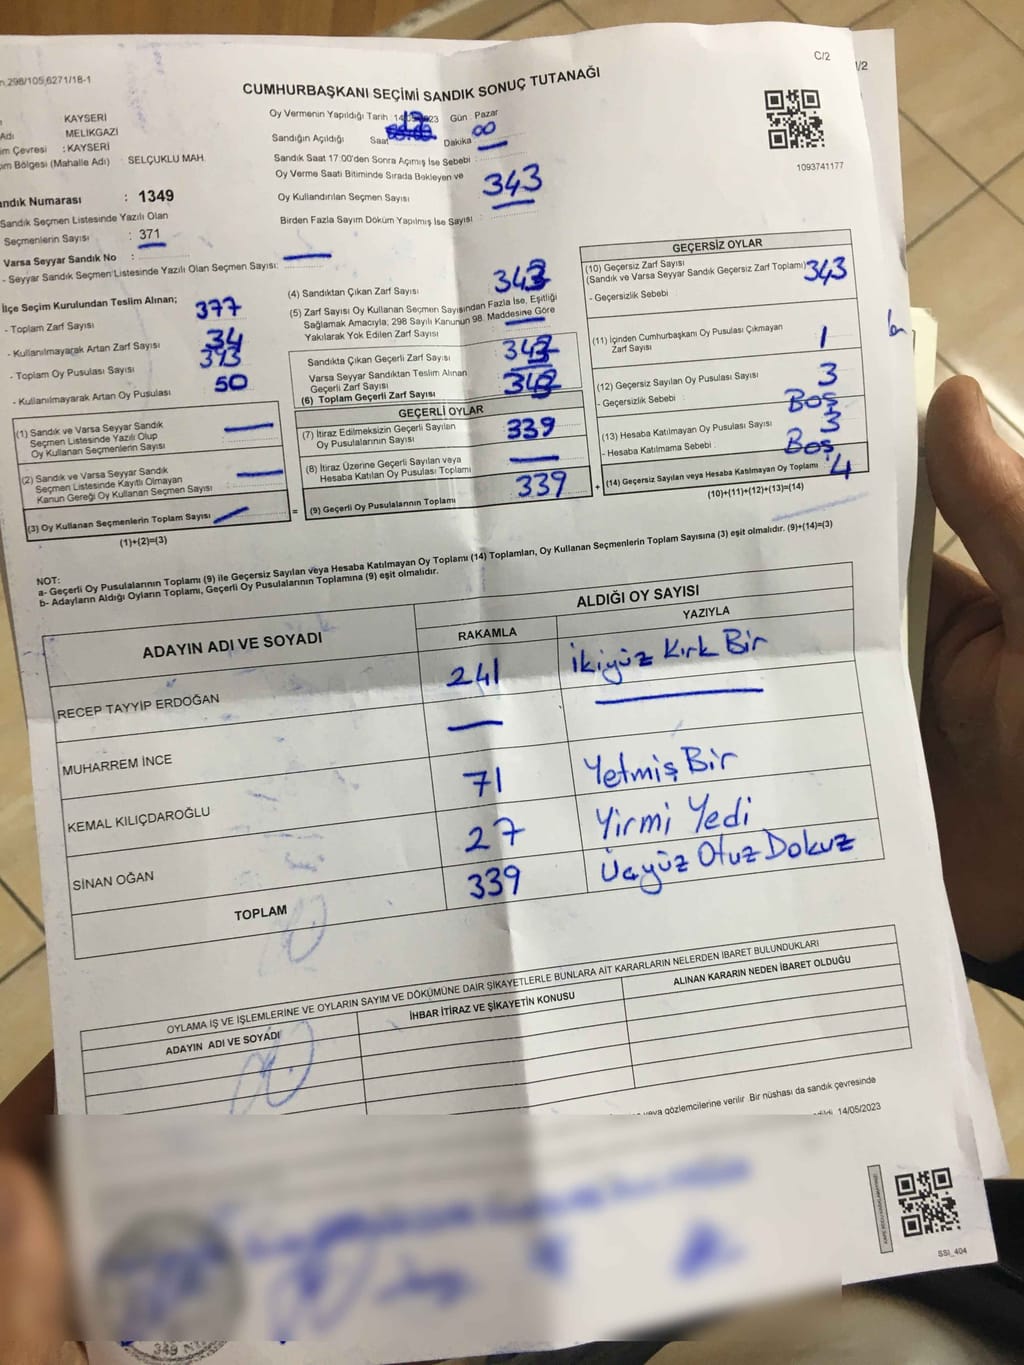 298/105,6271/18-1
C/2
1/2
CUMHURBAŞKANI SEÇİMİ SANDIK SONUÇ TUTANAĞI
KAYSERİ
Adı MELİKGAZİ
im Çevresi : KAYSERİ
im Bölgesi (Mahalle Adı) : SELÇUKLU MAH.
andık Numarası : 1349
Sandık Seçmen Listesinde Yazılı Olan
Seçmenlerin Sayısı : 371
Varsa Seyyar Sandık No :
- Seyyar Sandık Seçmen Listesinde Yazılı Olan Seçmen Sayısı:
Oy Vermenin Yapıldığı Tarih : Gün Pazar
Sandığın Açıldığı Saat Dakika 00
Sandık Saat 17:00'den Sonra Açımış İse Sebebi :
Oy Verme Saati Bitiminde Sırada Bekleyen ve
Oy Kullandırılan Seçmen Sayısı 343
Birden Fazla Sayım Döküm Yapılmış İse Sayısı :
1093741177
İlçe Seçim Kurulundan Teslim Alınan;
- Toplam Zarf Sayısı 377
- Kullanılmayarak Artan Zarf Sayısı 34
- Toplam Oy Pusulası Sayısı 393
- Kullanılmayarak Artan Oy Pusulası 50
(1) Sandık ve Varsa Seyyar Sandık
Seçmen Listesinde Yazılı Olup
Oy Kullanan Seçmenlerin Sayısı
(2) Sandık ve Varsa Seyyar Sandık
Seçmen Listesinde Kayıtlı Olmayan
Kanun Gereği Oy Kullanan Seçmen Sayısı
(3) Oy Kullanan Seçmenlerin Toplam Sayısı
(1)+(2)=(3)
=
(4) Sandıktan Çıkan Zarf Sayısı 343
(5) Zarf Sayısı Oy Kullanan Seçmen Sayısından Fazla İse, Eşitliği
Sağlamak Amacıyla; 298 Sayılı Kanunun 98. Maddesine Göre
Yakılarak Yok Edilen Zarf Sayısı
Sandıkta Çıkan Geçerli Zarf Sayısı 343
Varsa Seyyar Sandıktan Teslim Alınan
Geçerli Zarf Sayısı
(6) Toplam Geçerli Zarf Sayısı 343
GEÇERLİ OYLAR
(7) İtiraz Edilmeksizin Geçerli Sayılan
Oy Pusulalarının Sayısı 339
(8) İtiraz Üzerine Geçerli Sayılan veya
Hesaba Katılan Oy Pusulası Toplamı
(9) Geçerli Oy Pusulalarının Toplamı 339
+
GEÇERSİZ OYLAR
(10) Geçersiz Zarf Sayısı
(Sandık ve Varsa Seyyar Sandık Geçersiz Zarf Toplamı) 343
- Geçersizlik Sebebi :
(11) İçinden Cumhurbaşkanı Oy Pusulası Çıkmayan
Zarf Sayısı 1
(12) Geçersiz Sayılan Oy Pusulası Sayısı 3
- Geçersizlik Sebebi : Boş
(13) Hesaba Katılmayan Oy Pusulası Sayısı 3
- Hesaba Katılmama Sebebi : Boş
(14) Geçersiz Sayılan veya Hesaba Katılmayan Oy Toplamı 4
(10)+(11)+(12)+(13)=(14)
NOT:
a- Geçerli Oy Pusulalarının Toplamı (9) ile Geçersiz Sayılan veya Hesaba Katılmayan Oy Toplamı (14) Toplamları, Oy Kullanan Seçmenlerin Toplam Sayısına (3) eşit olmalıdır. (9)+(14)=(3)
b- Adayların Aldığı Oyların Toplamı, Geçerli Oy Pusulalarının Toplamına (9) eşit olmalıdır.
ADAYIN ADI VE SOYADI
ALDIĞI OY SAYISI
RAKAMLA YAZIYLA
RECEP TAYYİP ERDOĞAN 241 İkiyüz Kırk Bir
MUHARREM İNCE
KEMAL KILIÇDAROĞLU 71 Yetmiş Bir
SİNAN OĞAN 27 Yirmi Yedi
TOPLAM 339 Üçyüz Otuz Dokuz
OYLAMA İŞ VE İŞLEMLERİNE VE OYLARIN SAYIM VE DÖKÜMÜNE DAİR ŞİKAYETLERLE BUNLARA AİT KARARLARIN NELERDEN İBARET BULUNDUKLARI
ADAYIN ADI VE SOYADI İHBAR İTİRAZ VE ŞİKAYETİN KONUSU ALINAN KARARIN NEDEN İBARET OLDUĞU
veya gözlemcilerine verilir. Bir nüshası da sandık çevresinde
14/05/2023
SSİ_404